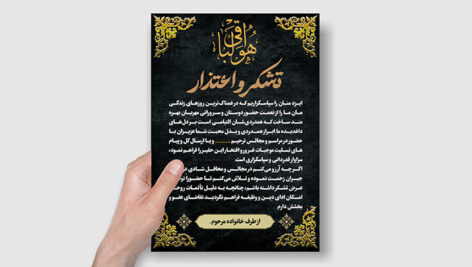 هوالباقی
تشکر و اعتذار
ایزد منان را سپاسگزاریم که در غمناک‌ترین روزهای زندگی
مان ما را از نعمت حضور دوستان و سرورانی مهربان بهره
مند ساخت که همدردی‌شان التیامی است بر دل‌های
داغدیده ما ابراز همدردی و بذل محبت شما عزیزان با
حضور در مراسم و مجالس ترحیم ........ و یا ارسال گل و پیام
های تسلیت موجبات غرور و افتخار این حقیر را فراهم نمود،
سزاوار قدردانی و سپاسگزاری است
اگر چه آرزو می‌کنیم در مجالس و محافل شادی
جبران زحمت نموده و تلاش می‌کنم تا حضورا
عرض تشکر داشته باشم، چنانچه به دلیل تألمات روحی
امکان ادای دین و وظیفه فراهم نگردید تقاضای عفو و
بخشش دارم
از طرف خانواده مرحوم.